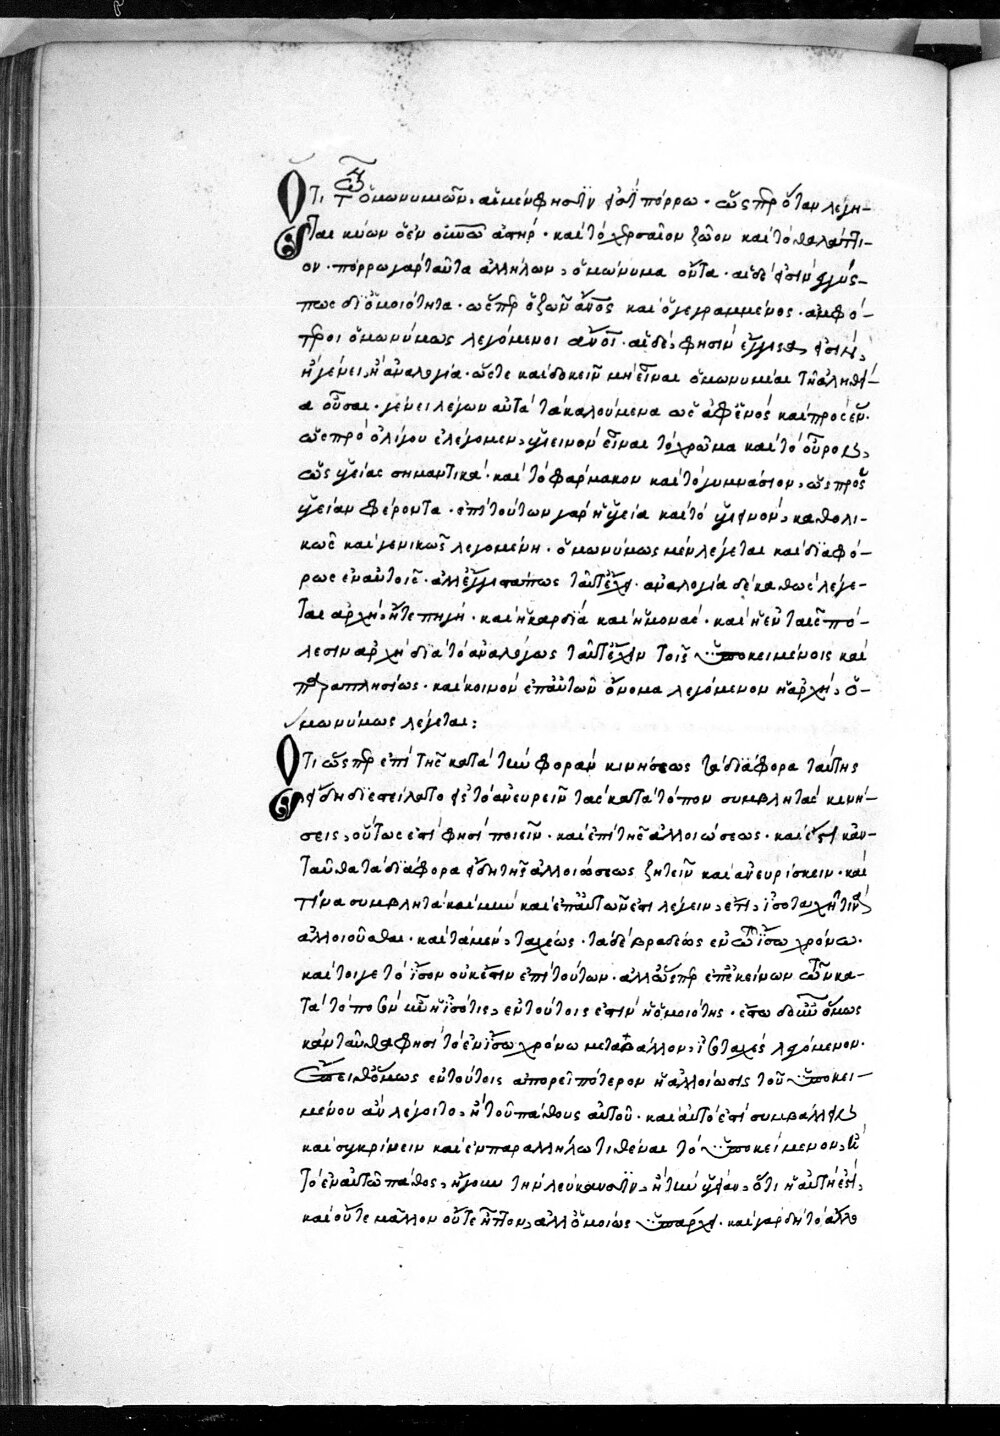 Ὅτι τῶν ὁμωνυμιῶν, αἱ μέν φησιν εἰσὶ πόρρω· ὥσπερ ὅταν λέγη-
ται κύων ὁ ἐν οὐρανῷ ἀστήρ· καὶ τὸ χερσαῖον ζῶον καὶ τὸ θαλάττι-
ον· πόρρω γὰρ ταῦτα ἀλλήλων, ὁμώνυμα ὄντα· αἱ δέ εἰσιν ἐγγύς
πως δι' ὁμοιότητα· ὥσπερ ὁ ζῶν ἄνος καὶ ὁ γεγραμμένος· ἀμφό-
τεροι ὁμωνύμως λεγόμενοι ἄνοι· αἱ δέ, φησιν ἐγγύς εἰσιν,
ἢ γένει, ἢ ἀναλογία· ὥστε καὶ δοκεῖν μὴ εἶναι ὁμωνυμίαι τῇ ἀληθεί-
α οὖσαι· γένει λέγων αὐτὰ τὰ καλούμενα ὡς ἀφ' ἑνός καὶ πρὸς ἕν·
ὥσπερ ὀλίγου ἐλέγομεν, ὑγιεινὸν εἶναι τὸ χρῶμα καὶ τὸ οὖρον,
ὡς ὑγείας σημαντικά· καὶ τὸ φάρμακον καὶ τὸ γυμνάσιον, ὡς πρὸς
ὑγείαν φέροντα· ἐπὶ τούτων γὰρ ἡ ὑγεία καὶ τὸ ὑγιεινόν, καθολι-
κῶς καὶ γενικῶς λεγομένη· ὁμωνύμως μὲν λέγεται καὶ διαφό-
ρως ἐν αὐτοῖς· ἀλλ' ἔγγιστά πως ταῦτ' ἔχει· ἀναλογία δὲ καθὼς λέγε-
ται ἀρχή, ἥτε πηγή· καὶ ἡ καρδία καὶ ἡ μονάς· καὶ ἡ ἐν ταῖς πό-
λεσιν ἀρχή διὰ τὸ ἀναλόγως ταῦτ' ἔχειν τοῖς ὑποκειμένοις καὶ
παραπλησίως· καὶ κοινὸν ἐπ' αὐτῶν ὄνομα λεγόμενον ἡ ἀρχή, ὁ-
μωνύμως λέγεται:
Ὅτι ὥσπερ ἐπὶ τῆς κατὰ τὴν φορὰν κινήσεως τὰ διάφορα ταύτης
εἴδη διεστείλατο εἰς τὸ ἀνευρεῖν τὰς κατὰ τόπον συμβλητὰς κινή-
σεις, οὕτως ἔστι φησὶ ποιεῖν· καὶ ἐπὶ τῆς ἀλλοιώσεως· καὶ ἔστι κἀν-
ταῦθα τὰ διάφορα εἴδη τῆς ἀλλοιώσεως ζητεῖν καὶ ἀνευρίσκειν· καὶ
τίνα συμβλητὰ καὶ μὴ καὶ ἐπ' αὐτῶν ἔστι λέγειν, ὅτι, ἰσοταχῆ τινὰ
ἀλλοιοῦσθαι· καὶ τὰ μὲν, ταχέως· τὰ δὲ βραδέως ἐν τῷ ἴσω χρόνω·
καί τοι γε τὸ ἴσον οὐκ ἔστιν ἐπὶ τούτων· ἀλλ' ὥσπερ ἐπ' ἐκείνων τῶν κα-
τὰ τὸ ποσὸν μὲν ἡ ἰσότης, ἐν τούτοις ἐστὶν ἡ ὁμοιότης· ἔστω δ' οὖν ὅμως
κἀνταῦθα φησὶ τὸ ἐν ἴσω χρόνω μεταβάλλον, ἰσοταχὲς λεγόμενον·
Ὥστε ὅμως ἐν τούτοις ἀπορεῖ πότερον ἡ ἀλλοίωσις τοῦ ὑποκει-
μένου ἂν λέγοιτο, ἢ τοῦ πάθους αὐτοῦ· καὶ αὐτό ἐστι συμβάλλειν
καὶ συγκρίνειν καὶ ἐν παραλλήλω τιθέναι τὸ ὑποκείμενον, ἢ
τὸ ἐν αὐτῷ πάθος, ἤγουν τὴν λεύκανσιν, ἢ τὴν ὑγείαν, ὅτι ἡ αὐτή ἐστι,
καὶ οὔτε μᾶλλον οὔτε ἧττον, ἀλλ' ὁμοίως ὑπάρχει· καὶ γὰρ δὴ τὸ ἄλλο